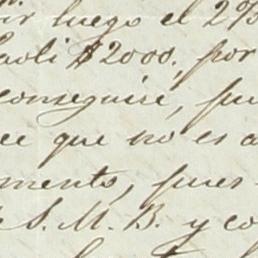 ir luego el 2%
aoli $2000, por
conseguiré, pu
ce que no es a
mento, pues
S. M. B. y co